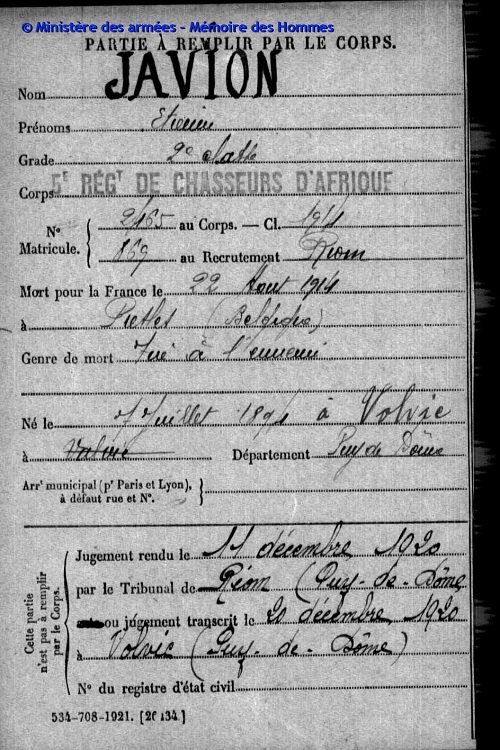 © Ministère des armées - Mémoire des Hommes
PARTIE À REMPLIR PAR LE CORPS.
Nom JAVION
Prénoms Etienne
Grade 2e classe
Corps 5E RÉGT DE CHASSEURS D'AFRIQUE
No Matricule. 2465 au Corps. — Cl. 1914
869 au Recrutement Riom
Mort pour la France le 22 Août 1914
à (Belgique)
Genre de mort Tué à l'ennemi
Né le 7 Juillet 1894 à Volvic
à Département Puy de Dôme
Arrt municipal (pr Paris et Lyon),
à défaut rue et No.
Cette partie
n'est pas à remplir
par le Corps.
Jugement rendu le 11 décembre 1920
par le Tribunal de Riom (Puy-de-Dôme
ou jugement transcrit le 20 décembre 1920
à Volvic (Puy-de-Dôme)
No du registre d'état civil
534-708-1921. [26434.]